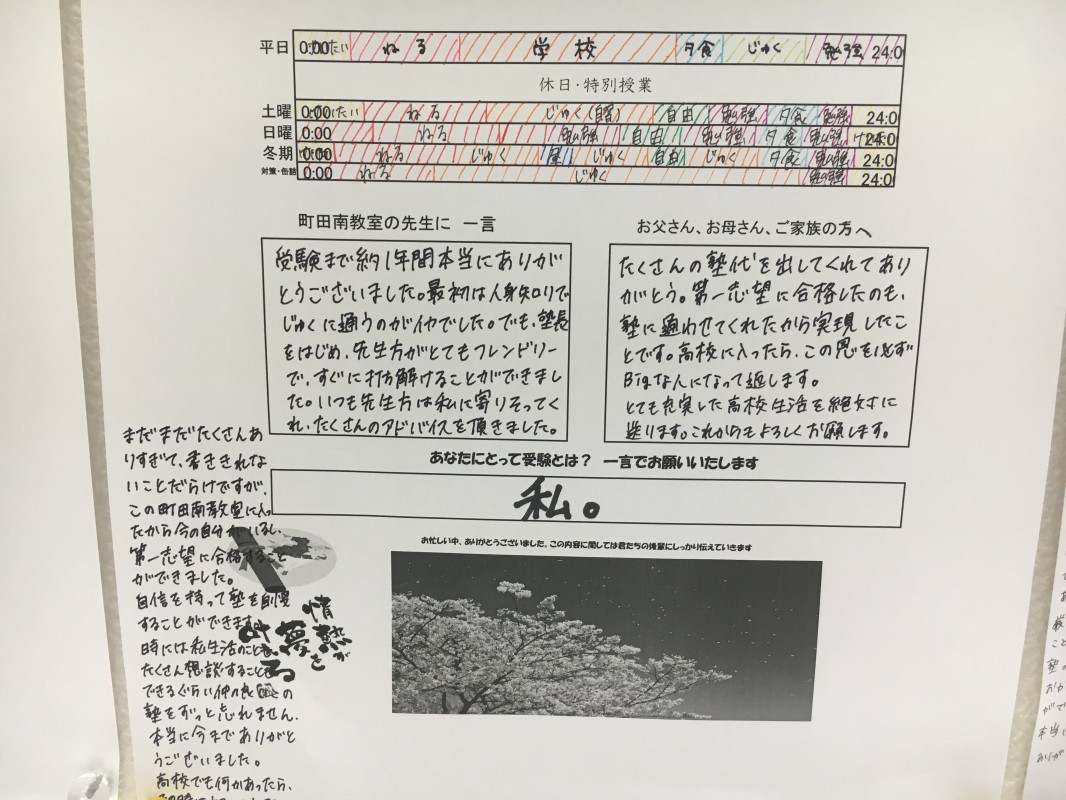 平日 0:00 ねる 学校 夕食 じゅく 勉強 24:0
休日・特別授業
土曜 0:00 ねる じゅく(自習) 自由 勉強 夕食 勉強 24:0
日曜 0:00 ねる 勉強 自由 勉強 夕食 勉強 24:0
冬期 0:00 ねる じゅく 昼 じゅく 自由 じゅく 夕食 勉強 24:0
対策・缶詰 0:00 ねる じゅく 勉強 24:0
町田南教室の先生に 一言
受験まで約1年間本当にありが
とうございました。最初は人見知りで
じゅくに通うのがイヤでした。でも、塾長
をはじめ、先生方がとてもフレンドリー
で、すぐに打ち解けることができまし
た。いつも先生方は私に寄りそってく
れ、たくさんのアドバイスを頂きました。
お父さん、お母さん、ご家族の方へ
たくさんの塾代を出してくれてあり
がとう。第一志望に合格したのも、
塾に通わせてくれたから実現したこ
とです。高校に入ったら、この恩を必ず
Bigなんになって返します。
とても充実した高校生活を絶対に
送ります。これからもよろしくお願します。
まだまだたくさんあ
りすぎて、書ききれな
いことだらけですが、
この町田南教室に入っ
たから今の自分がいるし、
第一志望に合格すること
ができました。
自信を持って塾を自慢
することができます。
時には私生活のことも、
たくさん相談することも
できるぐらい仲の良 の
塾をずっと忘れません。
本当に今までありがと
うございました。
高校でも何かあったら、
あなたにとって受験とは? 一言でお願いいたします
私。
お忙しい中、ありがとうございました。この内容に関しては君たちの後輩にしっかり伝えていきます
情熱が
夢を
叶える